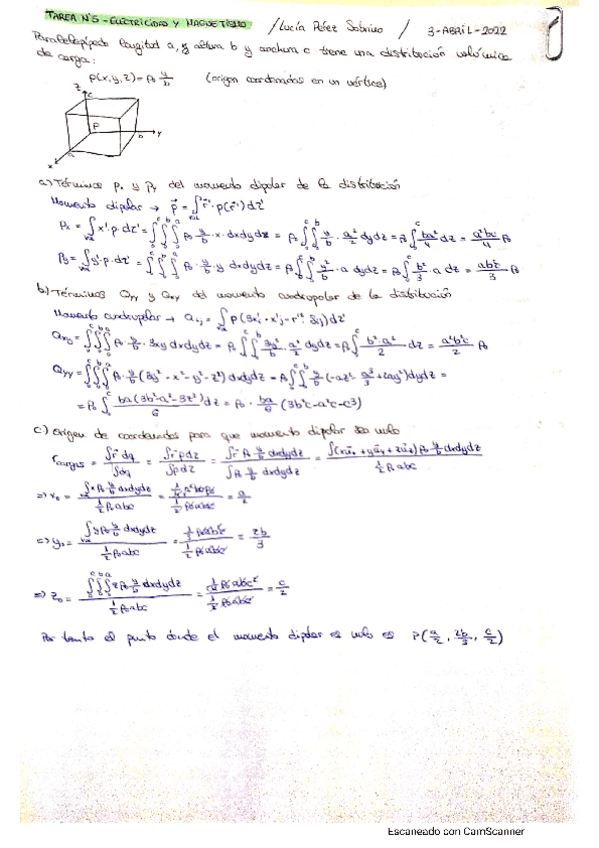 TAREA Nº5 - ELECTRICIDAD Y MAGNETISMO / Lucía Pérez Sobrino / 3-ABRIL-2022
1
Paralelepípedo longitud a, y altura b y anchura c tiene una distribución volúmica
de carga:
ρ(x,y,z) = ρ₀ y/b (origen coordenadas en un vértice)
z c
P
b y
x a
a) Términos Px y Py del momento dipolar de la distribución
Momento dipolar → p⃗ = ∫vol r⃗' · ρ(r⃗') dτ'
Px = ∫vol x' · ρ · dτ' = ∫₀^c ∫₀^b ∫₀^a ρ₀ y/b · x · dxdydz = ρ₀ ∫₀^c ∫₀^b y/b · a²/2 dydz = ρ₀ ∫₀^c ba²/4 dz = a²bc/4 ρ₀
Py = ∫vol y' · ρ · dτ' = ∫₀^c ∫₀^b ∫₀^a ρ₀ y/b · y dxdydz = ρ₀ ∫₀^c ∫₀^b y²/b · a dydz = ρ₀ ∫₀^c b²/3 · a dz = ab²c/3 ρ₀
b) Términos Qyy y Qxy del momento cuadrupolar de la distribución
Momento cuadrupolar → Qij = ∫vol ρ(3xi' · xj' - r'² δij) dτ'
Qxy = ∫₀^c ∫₀^b ∫₀^a ρ₀ · y/b · 3xy dxdydz = ρ₀ ∫₀^c ∫₀^b 3y²/b · a²/2 dydz = ρ₀ ∫₀^c b² · a²/2 dz = a²b²c/2 ρ₀
Qyy = ∫₀^c ∫₀^b ∫₀^a ρ₀ · y/b · (3y² - x² - y² - z²) dxdydz = ρ₀ ∫₀^c ∫₀^b y/b (-az² - a³/3 + 2ay²) dydz =
= ρ₀ ∫₀^c ba(3b² - a² - 3z²)/6 dz = ρ₀ · ba/6 (3b²c - a²c - c³)
c) Origen de coordenadas para que momento dipolar sea nulo
r cargas = ∫r⃗ dq / ∫dq = ∫r⃗ ρdz / ∫ρdz = ∫r⃗ ρ₀ y/b dxdydz / ∫ρ₀ y/b dxdydz = ∫(xu⃗x + yu⃗y + zu⃗z) ρ₀ y/b dxdydz / ½ρ₀abc
=> x₀ = ∫vol xρ₀ y/b dxdydz / ½ρ₀abc = ¼a²bcρ₀ / ½ρ₀abc = a/2
=> y₀ = ∫vol yρ₀ y/b dxdydz / ½ρ₀abc = ⅓ρ₀ab²c / ½ρ₀abc = 2b/3
=> z₀ = ∫₀^c ∫₀^b ∫₀^a zρ₀ y/b dxdydz / ½ρ₀abc = ¼ρ₀abc² / ½ρ₀abc = c/2
Por tanto el punto donde el momento dipolar es nulo es P(a/2, 2b/3, c/2)
Escaneado con CamScanner